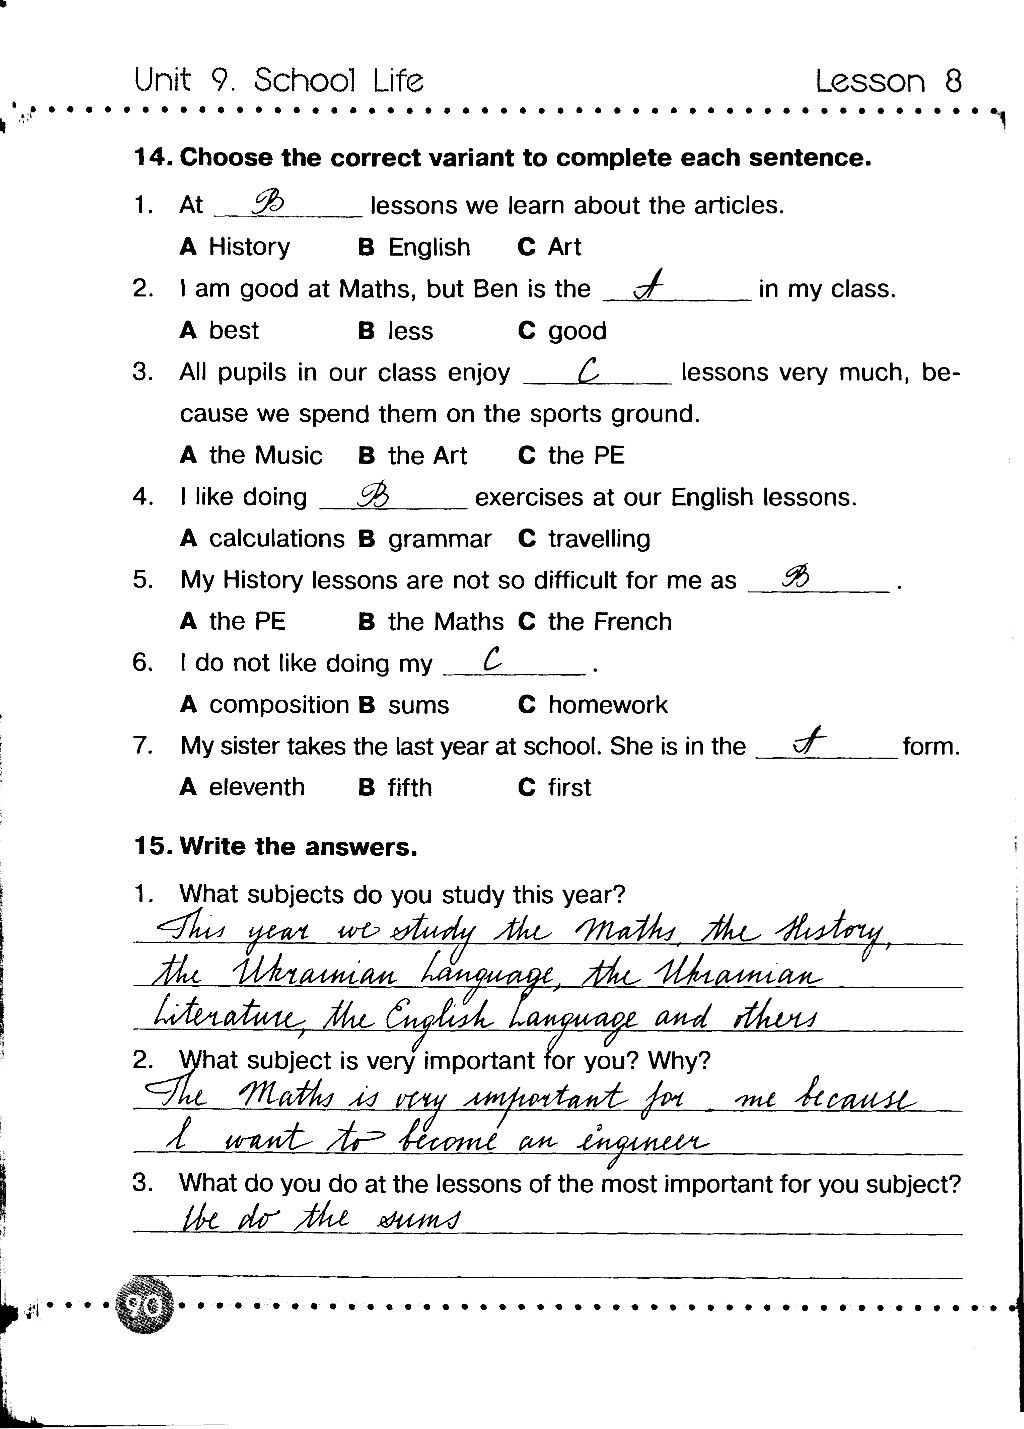 Unit 9. School Life Lesson 8
14. Choose the correct variant to complete each sentence.
1. At B lessons we learn about the articles.
A History B English C Art
2. I am good at Maths, but Ben is the A in my class.
A best B less C good
3. All pupils in our class enjoy C lessons very much, be-
cause we spend them on the sports ground.
A the Music B the Art C the PE
4. I like doing B exercises at our English lessons.
A calculations B grammar C travelling
5. My History lessons are not so difficult for me as B .
A the PE B the Maths C the French
6. I do not like doing my C .
A composition B sums C homework
7. My sister takes the last year at school. She is in the A form.
A eleventh B fifth C first
15. Write the answers.
1. What subjects do you study this year?
This year we study the Maths, the History,
the Ukrainian Language, the Ukrainian
Literature, the English Language and others
2. What subject is very important for you? Why?
The Maths is very important for me because
I want to become an engineer
3. What do you do at the lessons of the most important for you subject?
We do the sums
90